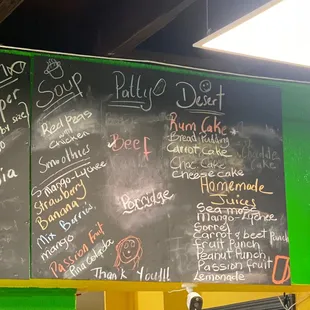 Soup
Red Peas
with
Chicken
Smoothies
Mango-Lychee
Strawberry
Banana
Mix
Berries
mango
Passion Fruit
Pina Colada
Patty
Beef
Porridge
Thank You!!!
Desert
Rum Cake
Bread Pudding
Carrot Cake
Choc. Cake
Cheese cake
Homemade
Juices
Sea moss
Mango-Lychee
Sorrel
Carrot & beet Punch
fruit Punch
Peanut Punch
Passion fruit
Lemonade